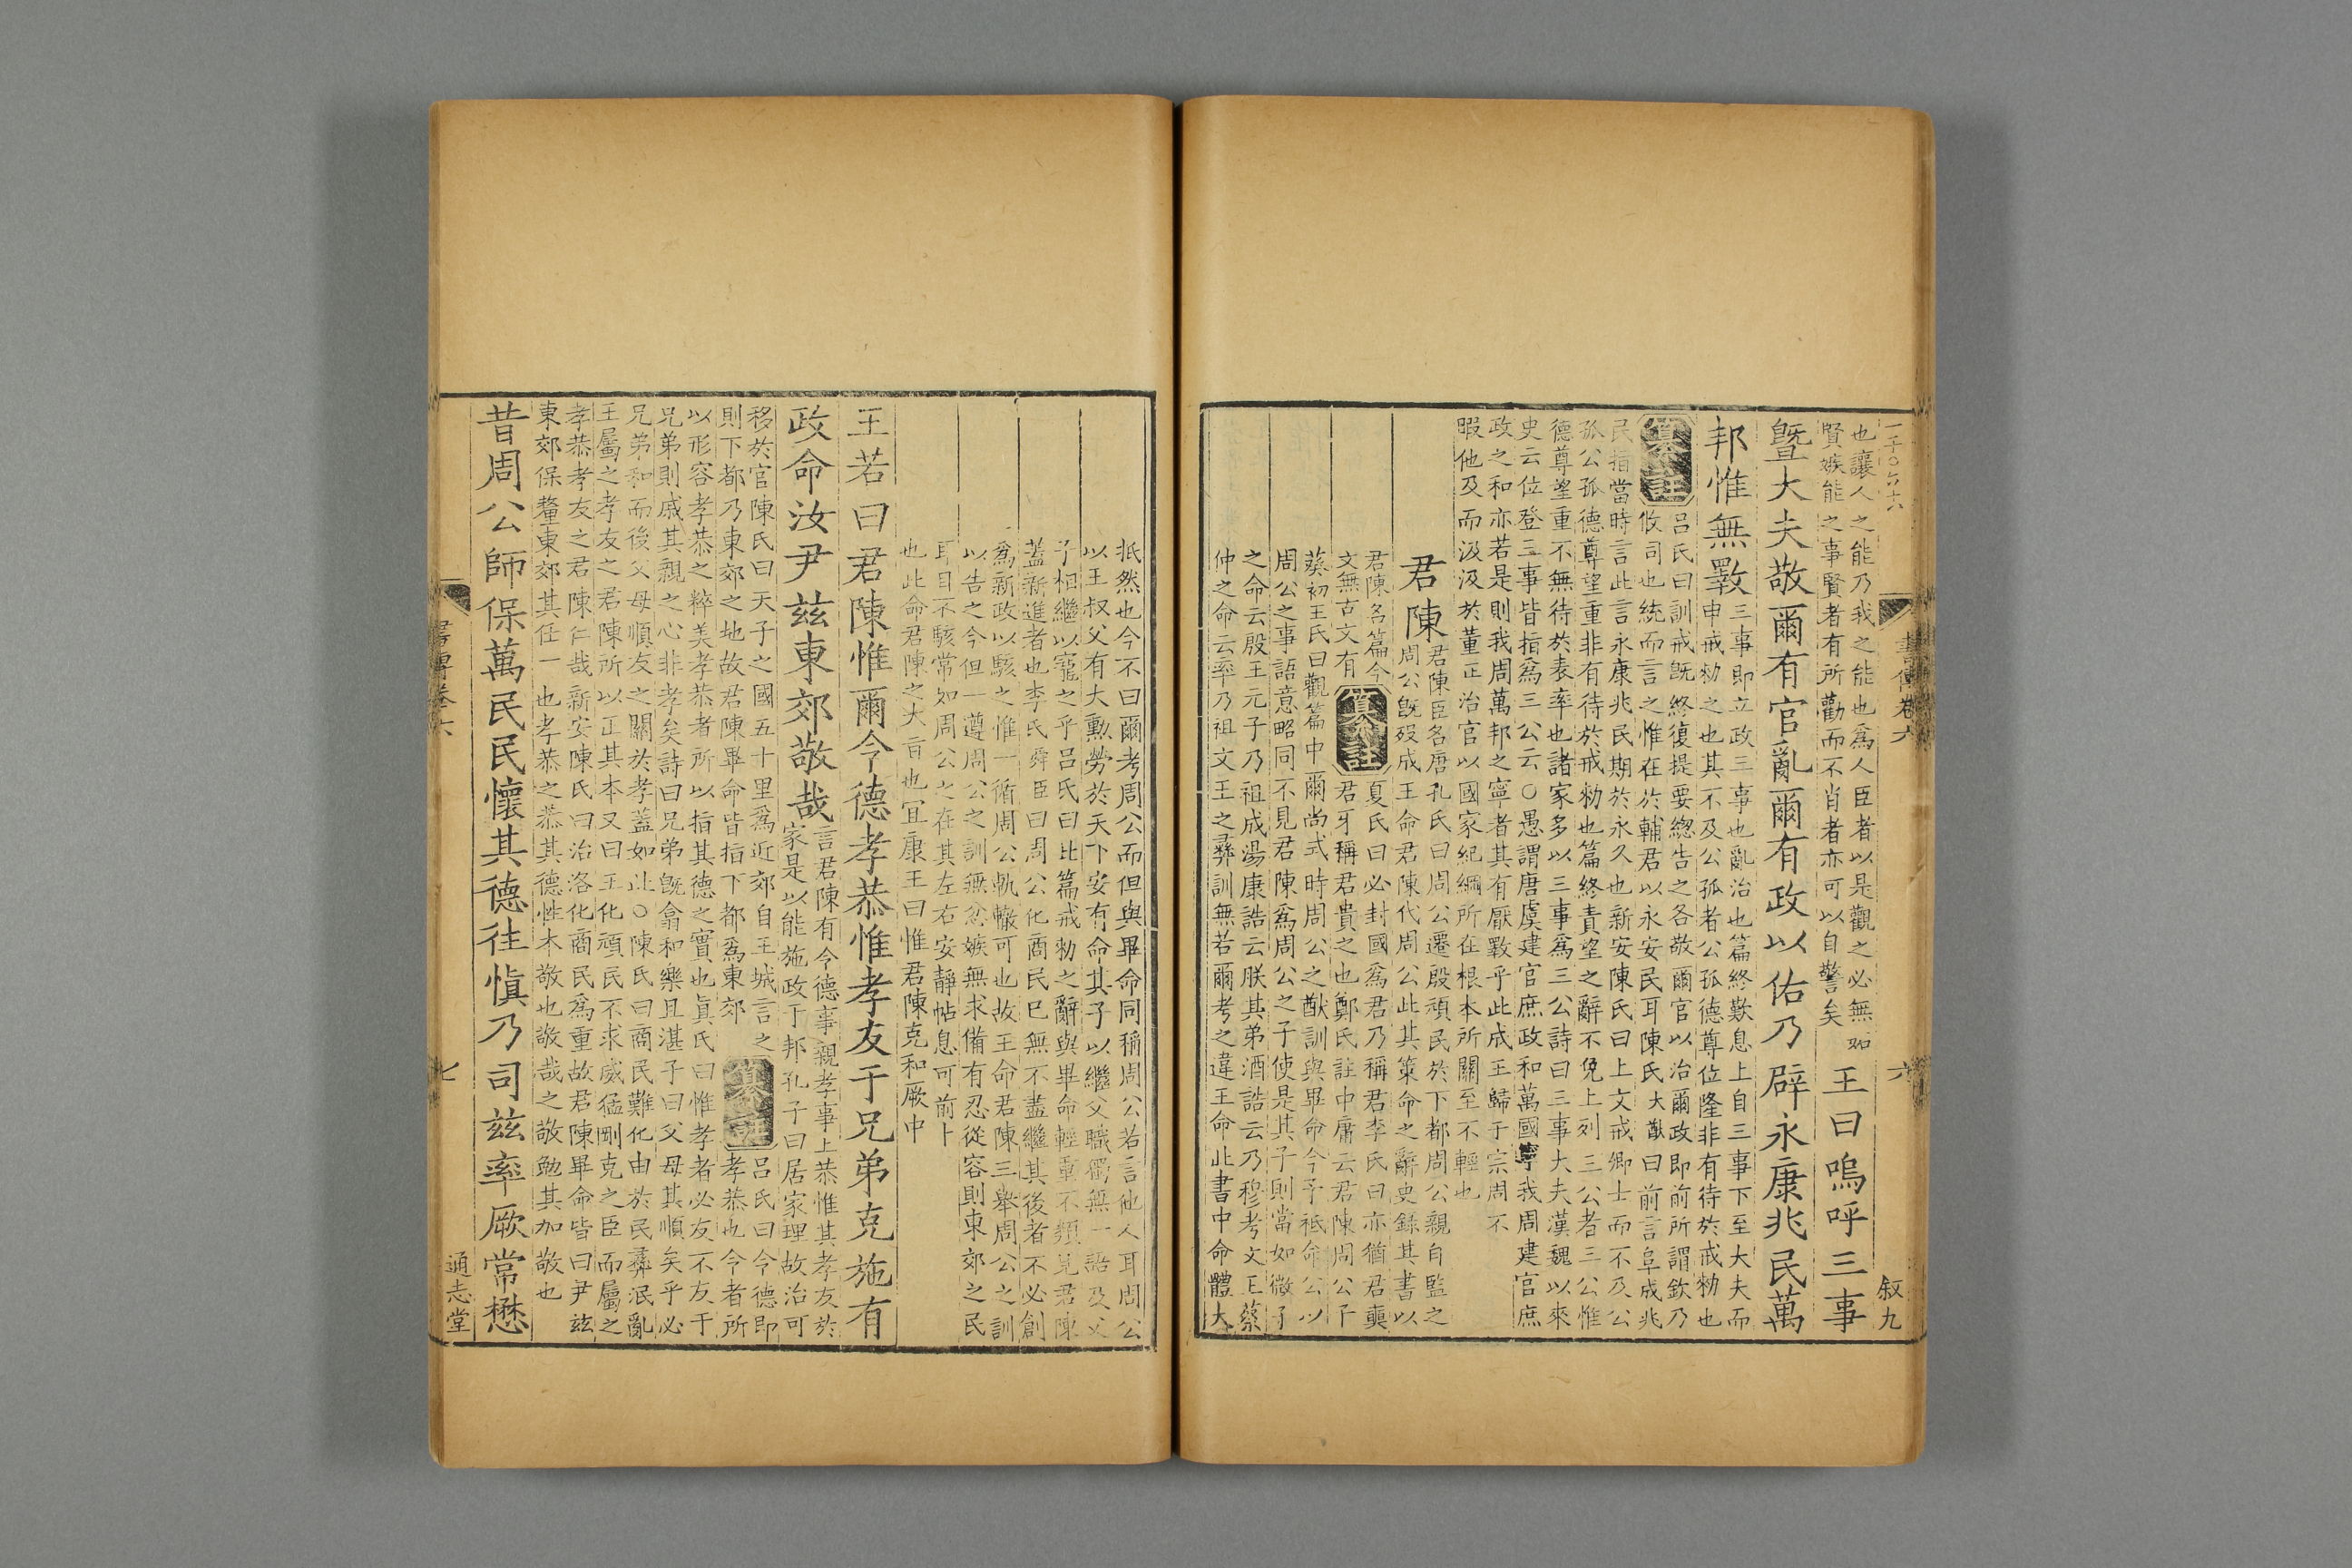 一千〇六十六
書傳卷六
六
叙九
也讓人之能乃我之能也爲人臣者以是觀之必無妬
賢嫉能之事賢者有所勸而不肖者亦可以自警矣
王曰嗚呼三事
暨大夫敬爾有官亂爾有政以佑乃辟永康兆民萬
邦惟無斁
三事即立政三事也亂治也篇終歎息上自三事下至大夫而
申戒勑之也其不及公孤者公孤德尊位隆非有待於戒勑也
纂註
呂氏曰訓戒旣終復提要總告之各敬爾官以治爾政即前所謂欽乃
攸司也統而言之惟在於輔君以永安民耳陳氏大猷曰前言阜成兆
民指當時言此言永康兆民期於永久也新安陳氏曰上文戒卿士而不及公
孤公孤德尊望重非有待於戒勑也篇終責望之辭不免上列三公者三公惟
德尊望重不無待於表率也諸家多以三事爲三公詩曰三事大夫漢魏以來
史云位登三事皆指爲三公云〇愚謂唐虞建官庶政和萬國寧我周建官庶
政之和亦若是則我周萬邦之寧者其有厭斁乎此成王歸于宗周不
暇他及而汲汲於董正治官以國家紀綱所在根本所關至不輕也
君陳
君陳臣名唐孔氏曰周公遷殷頑民於下都周公親自監之
周公旣歿成王命君陳代周公此其策命之辭史錄其書以
君陳名篇今
文無古文有
纂註
夏氏曰必封國爲君乃稱君李氏曰亦猶君奭
君牙稱君貴之也鄭氏註中庸云君陳周公子
蔡初王氏曰觀篇中爾尚式時周公之猷訓與畢命今予祗命公以
周公之事語意略同不見君陳爲周公之子使是其子則當如微子
之命云殷王元子乃祖成湯康誥云朕其弟酒誥云乃穆考文王蔡
仲之命云率乃祖文王之彞訓無若爾考之違王命此書中命體大
抵然也今不曰爾考周公而但與畢命同稱周公若言他人耳周公
以王叔父有大勳勞於天下安有命其子以繼父職獨無一語及父
子相繼以寵之乎呂氏曰比篇戒勑之辭與畢命輕重不類見君陳
蓋新進者也李氏舜臣曰周公化商民已無不盡繼其後者不必創
爲新政以駭之惟一循周公軌轍可也故王命君陳三舉周公之訓
以告之今但一遵周公之訓無忿嫉無求備有忍從容則東郊之民
耳目不駭常如周公之在其左右安靜帖息可前卜
也此命君陳之大旨也宜康王曰惟君陳克和厥中
王若曰君陳惟爾令德孝恭惟孝友于兄弟克施有
政命汝尹茲東郊敬哉
言君陳有令德事親孝事上恭惟其孝友於
家是以能施政于邦孔子曰居家理故治可
移於官陳氏曰天子之國五十里爲近郊自王城言之
則下都乃東郊之地故君陳畢命皆指下都爲東郊
纂註
呂氏曰令德即
孝恭也今者所
以形容孝恭之粹美孝恭者所以指其德之實也眞氏曰惟孝者必友不友于
兄弟則戚其親之心非孝矣詩曰兄弟旣翕和樂且湛子曰父母其順矣乎必
兄弟和而後父母順友之關於孝蓋如此〇陳氏曰商民難化由於民彞泯亂
王屬之孝友之君陳所以正其本又曰王化頑民不求威猛剛克之臣而屬之
孝恭孝友之君陳仁哉新安陳氏曰治洛化商民爲重故君陳畢命皆曰尹茲
東郊保釐東郊其任一也孝恭之恭其德性本敬也敬哉之敬勉其加敬也
昔周公師保萬民民懷其德往愼乃司茲率厥常懋
書傳卷六
七
通志堂